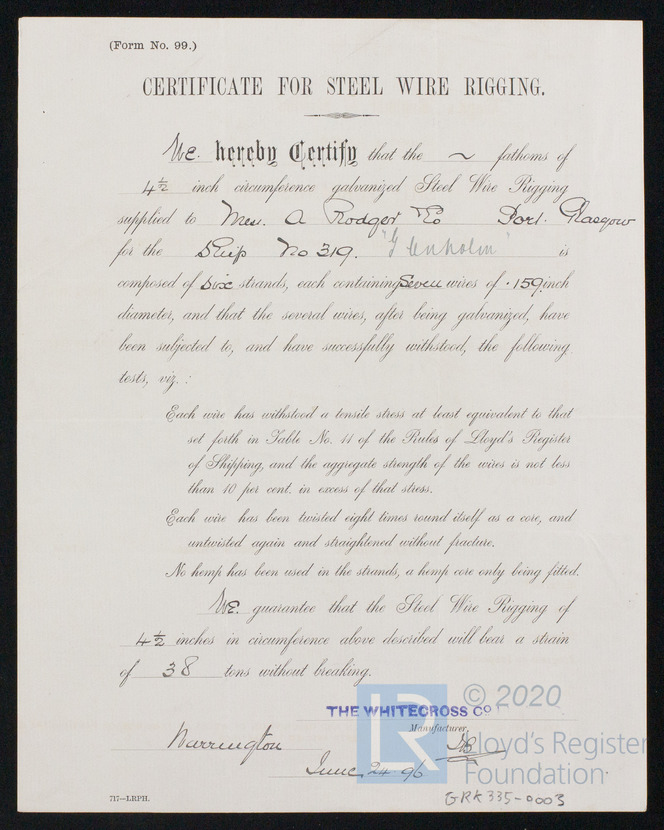 (Form No. 99.)
CERTIFICATE FOR STEEL WIRE RIGGING.
We hereby Certify that the ~ fathoms of
4½ inch circumference galvanized Steel Wire Rigging
supplied to Mess. A Rodger & Co Port. Glasgow
for the Ship No 319. "Glenholm" is
composed of six strands, each containing Seven wires of .159 inch
diameter, and that the several wires, after being galvanized, have
been subjected to, and have successfully withstood, the following
tests, viz.:
Each wire has withstood a tensile stress at least equivalent to that
set forth in Table No. 11 of the Rules of Lloyd's Register
of Shipping, and the aggregate strength of the wires is not less
than 10 per cent. in excess of that stress.
Each wire has been twisted eight times round itself as a core, and
untwisted again and straightened without fracture.
No hemp has been used in the strands, a hemp core only being fitted.
We guarantee that the Steel Wire Rigging of
4½ inches in circumference above described will bear a strain
of 38 tons without breaking.
© 2020
THE WHITECROSS Co
Manufacturer.
LR
Warrington
Lloyd's Register
June 24. 96
Foundation
717—LRPH.
GRK335-0003